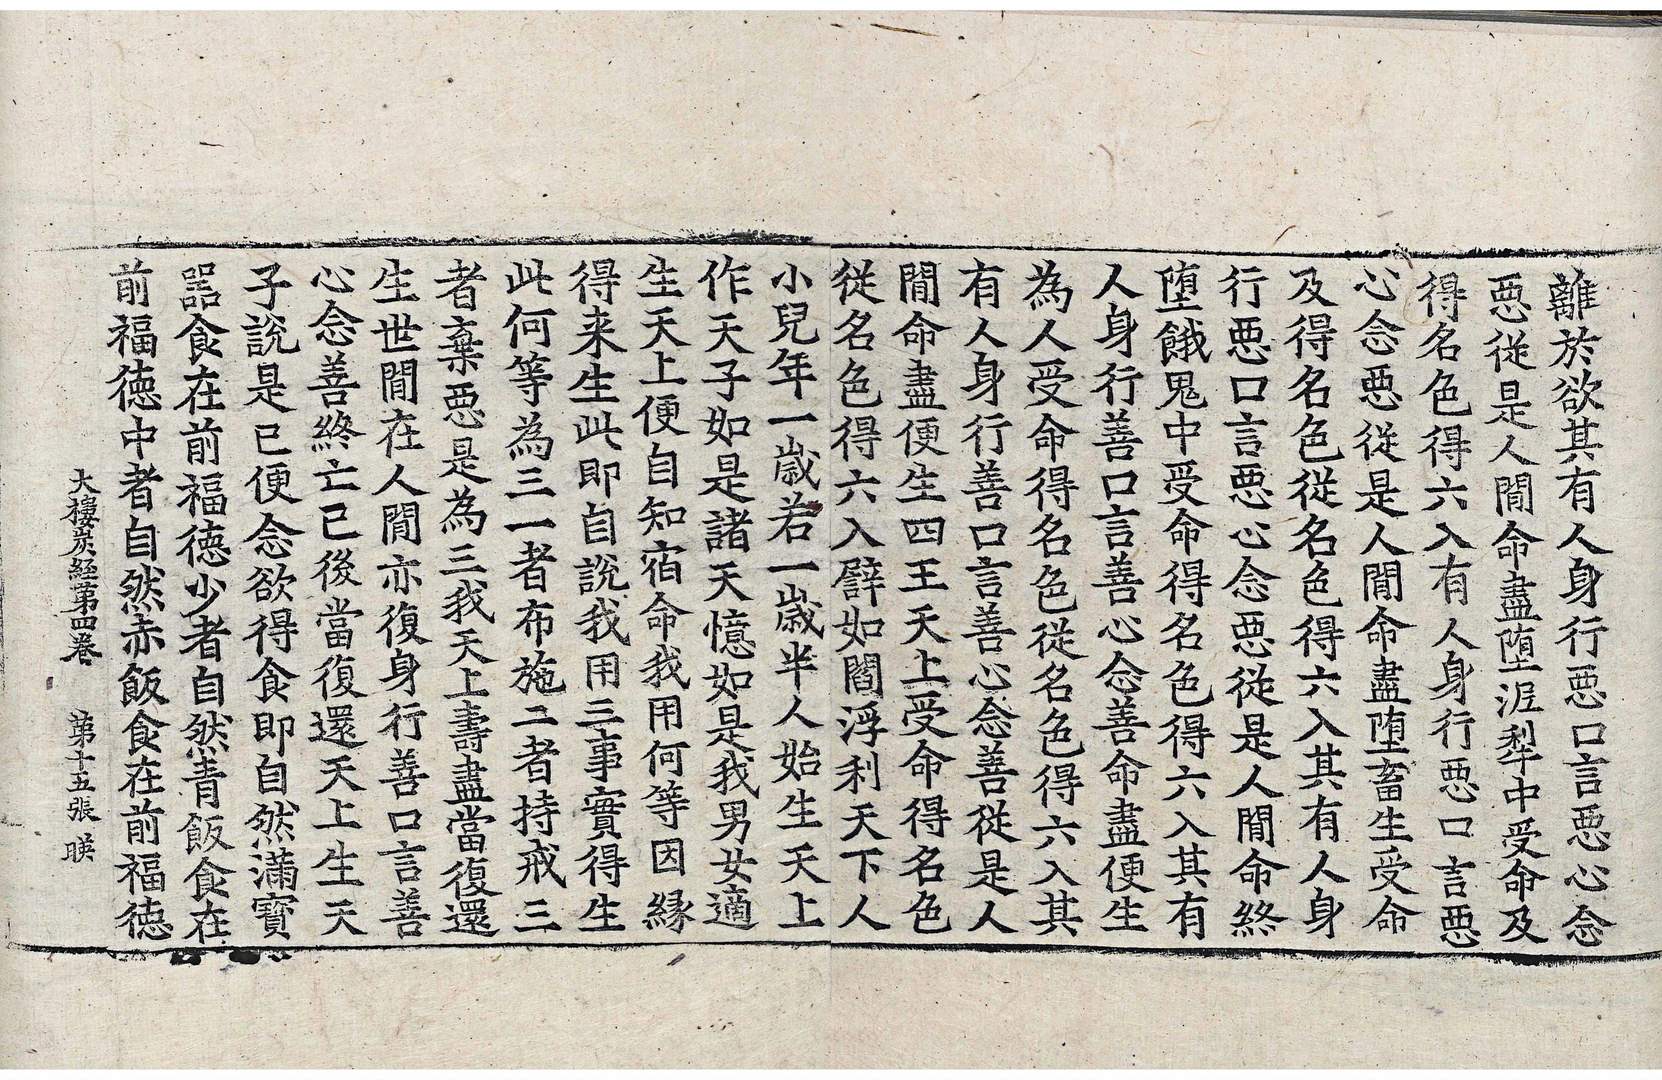 離於欲其有人身行惡口言惡心念
惡從是人間命盡墮泥犁中受命及
得名色得六入有人身行惡口言惡
心念惡從是人間命盡墮畜生受命
及得名色從名色得六入其有人身
行惡口言惡心念惡從是人間命終
墮餓鬼中受命得名色得六入其有
人身行善口言善心念善命盡便生
為人受命得名色從名色得六入其
有人身行善口言善心念善從是人
間命盡便生四王天上受命得名色
從名色得六入譬如閻浮利天下人
小兒年一歲若一歲半人始生天上
作天子如是諸天憶如是我男女適
生天上便自知宿命我用何等因緣
得来生此即自說我用三事實得生
此何等為三一者布施二者持戒三
者棄惡是為三我天上壽盡當復還
生世間在人間亦復身行善口言善
心念善終亡已後當復還天上生天
子說是已便念欲得食即自然滿寶
器食在前福德少者自然青飯食在
前福德中者自然赤飯食在前福德
大樓炭經第四卷 第十五張 暎